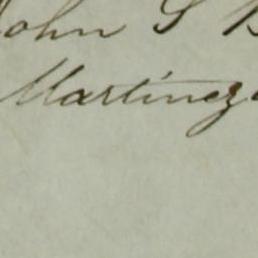 John S B
Martinez